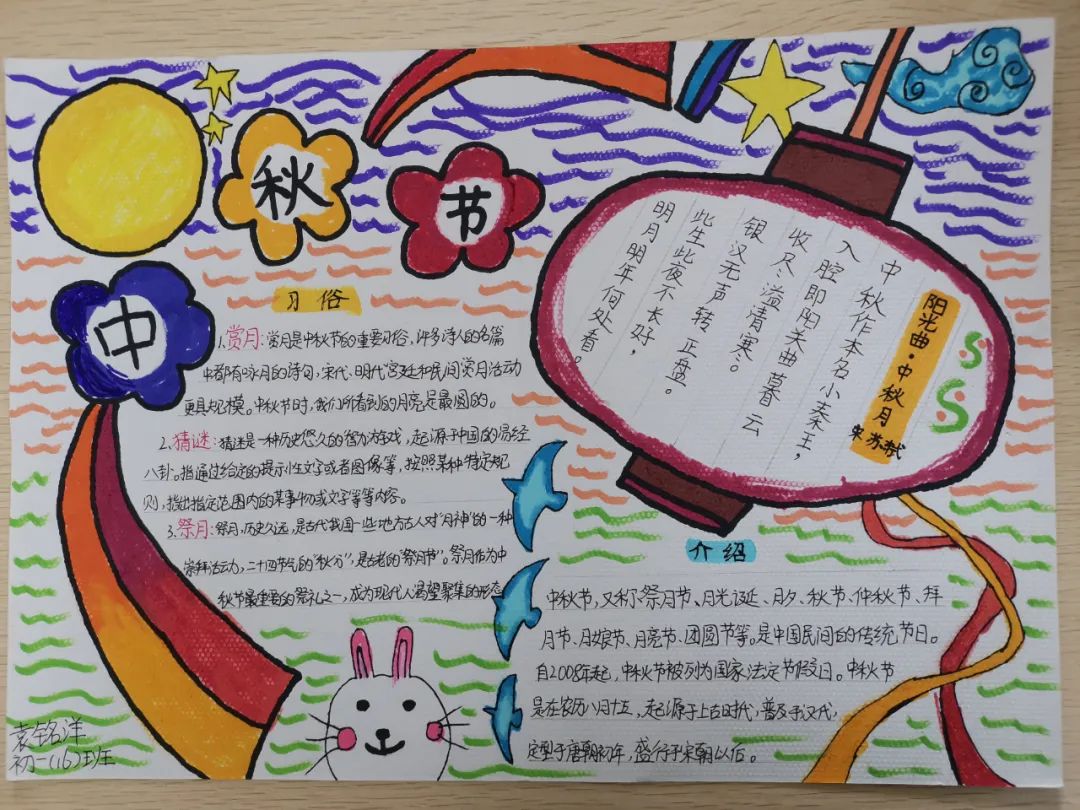 中
秋
节
习俗
1.赏月:赏月是中秋节的重要习俗,许多诗人的名篇
中都有咏月的诗句,宋代、明代宫廷和民间赏月活动
更具规模。中秋节时,我们所看到的月亮是最圆的。
2.猜谜:猜谜是一种历史悠久的智力游戏,起源于中国的易经
八卦。指通过给定的提示性文字或者图像等,按照某种特定规
则,指出指定范围内的某事物或文字等等内容。
3.祭月:祭月,历史久远,是古代我国一些地方古人对“月神”的一种
崇拜活动,二十四节气的“秋分”,是古老的“祭月节”。祭月作为中
秋节最重要的祭礼之一,成为现代人渴望聚集的形态
阳光曲·中秋月
宋苏轼
中秋作本名小秦王,
入腔即阳关曲暮云
收尽溢清寒。
银汉无声转玉盘。
此生此夜不长好,
明月明年何处看。
介绍
中秋节,又称祭月节、月光诞、月夕、秋节、仲秋节、拜
月节、月娘节、月亮节、团圆节等。是中国民间的传统节日。
自2008年起,中秋节被列为国家法定节假日。中秋节
是在农历八月十五,起源于上古时代,普及于汉代,
定型于唐朝初年,盛行于宋朝以后。
袁铭洋
初一(16)班